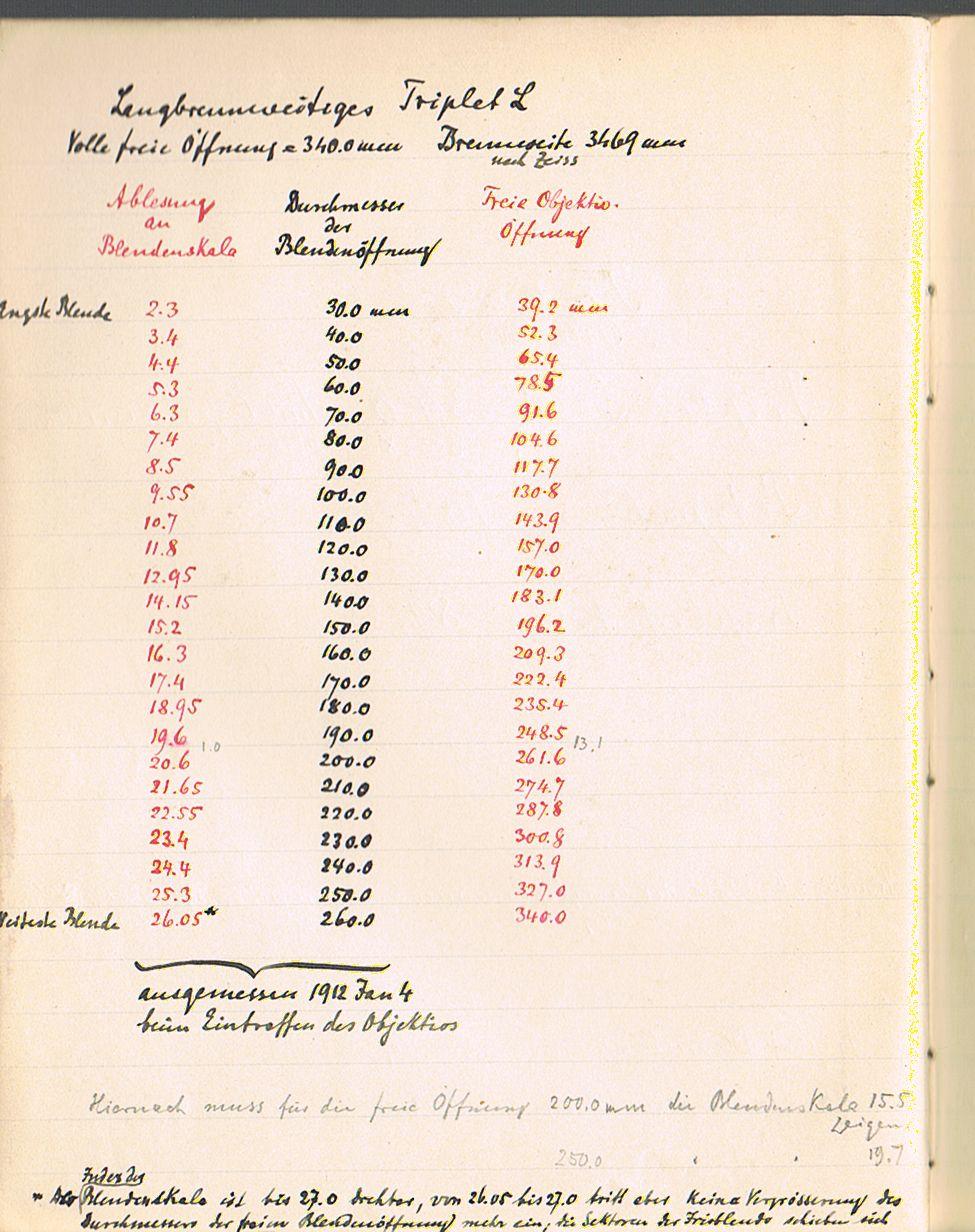 Langbrennweitiges Triplet L
Volle freie Öffnung = 340.0 mm Brennweite 3469 mm
nach Zeiss
Ablesung an Blendenskala Durchmesser der Blendenöffnung Freie Objektiv-Öffnung
Engste Blende 2.3 30.0 mm 39.2 mm
3.4 40.0 52.3
4.4 50.0 65.4
5.3 60.0 78.5
6.3 70.0 91.6
7.4 80.0 104.6
8.5 90.0 117.7
9.55 100.0 130.8
10.7 110.0 143.9
11.8 120.0 157.0
12.95 130.0 170.0
14.15 140.0 183.1
15.2 150.0 196.2
16.3 160.0 209.3
17.4 170.0 222.4
18.95 180.0 235.4
19.6 190.0 248.5
1.0 13.1
20.6 200.0 261.6
21.65 210.0 274.7
22.55 220.0 287.8
23.4 230.0 300.8
24.4 240.0 313.9
25.3 250.0 327.0
Weiteste Blende 26.05* 260.0 340.0
ausgemessen 1912 Jan 4
beim Eintreffen des Objektivs
Hiernach muss für die freie Öffnung 200.0 mm die Blendenskala 15.5
zeigen
250.0 " " 19.7
Index der
* Blendenskala ist bis 27.0 drehbar, von 26.05 bis 27.0 tritt aber keine Vergrösserung des
Durchmessers der freien Blendenöffnung mehr ein, die Sektoren der Irisblende schieben sich